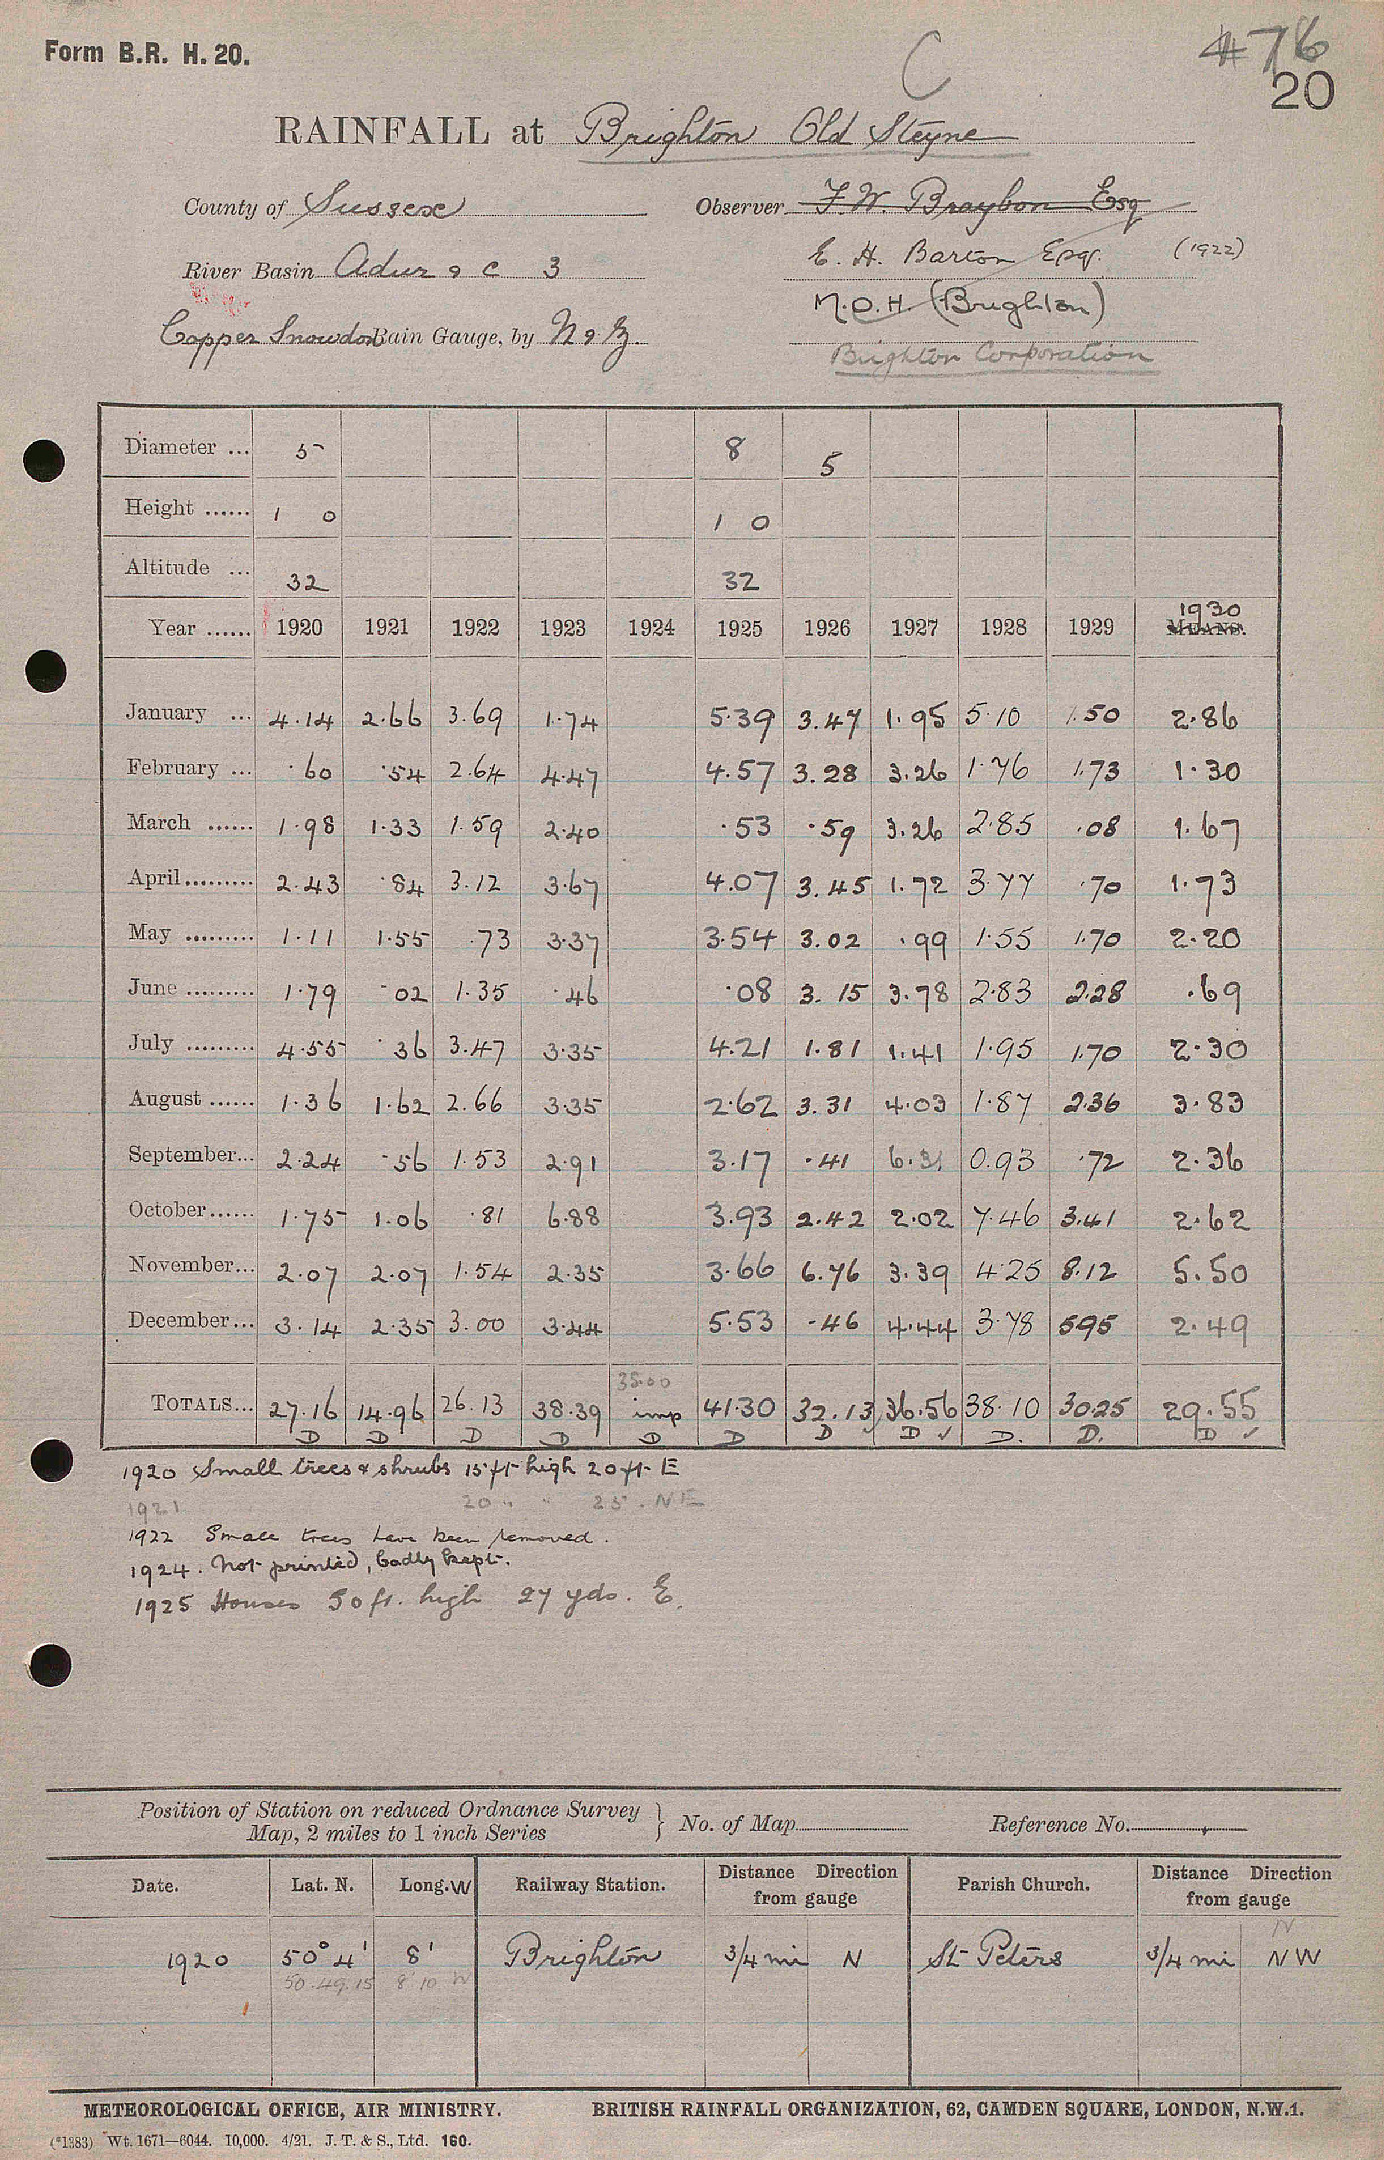 Form B.R. H. 20.
C
76
20
RAINFALL at Brighton Old Steyne
County of Sussex
Observer F. W. Braybon Esq
E. H. Barton Esq. (1922)
River Basin Adur & C 3
M.O.H. (Brighton)
Copper Snowdon Rain Gauge, by N & Z.
Brighton Corporation
Diameter ... 5 8 5
Height ...... 1 0 1 0
Altitude ... 32 32
Year ...... 1920 1921 1922 1923 1924 1925 1926 1927 1928 1929 1930 MEANS.
January ... 4.14 2.66 3.69 1.74 5.39 3.47 1.95 5.10 1.50 2.86
February ... .60 .54 2.64 4.47 4.57 3.28 3.26 1.76 1.73 1.30
March ...... 1.98 1.33 1.59 2.40 .53 .59 3.26 2.85 .08 1.67
April ......... 2.43 .84 3.12 3.67 4.07 3.45 1.72 3.77 .70 1.73
May ......... 1.11 1.55 .73 3.37 3.54 3.02 .99 1.55 1.70 2.20
June ......... 1.79 .02 1.35 .46 .08 3.15 3.78 2.83 2.28 .69
July ......... 4.55 .36 3.47 3.35 4.21 1.81 1.41 1.95 1.70 2.30
August ...... 1.36 1.62 2.66 3.35 2.62 3.31 4.03 1.87 2.36 3.83
September... 2.24 .56 1.53 2.91 3.17 .41 6.31 0.93 .72 2.36
October...... 1.75 1.06 .81 6.88 3.93 2.42 2.02 7.46 3.41 2.62
November... 2.07 2.07 1.54 2.35 3.66 6.76 3.39 4.25 8.12 5.50
December... 3.14 2.35 3.00 3.44 5.53 .46 4.44 3.78 595 2.49
35.00
TOTALS... 27.16 14.96 26.13 38.39 imp 41.30 32.13 36.56 38.10 30.25 29.55
D D D D D D D D ✓ D. D. D ✓
1920 Small trees & shrubs 15 ft high 20 ft E
1921 20 " " 25 . NE
1922 Small trees have been removed.
1924. Not printed, badly kept.
1925 Houses 50 ft. high 27 yds. E.
Position of Station on reduced Ordnance Survey
Map, 2 miles to 1 inch Series
No. of Map
Reference No.
Date. Lat. N. Long. W Railway Station. Distance Direction from gauge Parish Church. Distance Direction from gauge
N
1920 50° 4' 8' Brighton 3/4 mi N St Peters 3/4 mi NW
50.49.15 8' 10 W
METEOROLOGICAL OFFICE, AIR MINISTRY.
BRITISH RAINFALL ORGANIZATION, 62, CAMDEN SQUARE, LONDON, N.W.1.
(*1383) Wt. 1671—6044. 10,000. 4/21. J. T. & S., Ltd. 160.